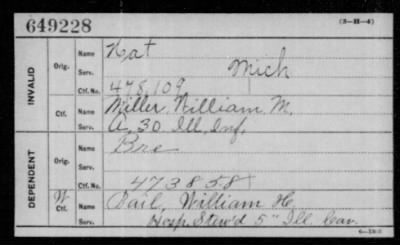 649228
(3—H—4)
INVALID
Orig.
Name Nat
Serv. Mich
Ctf. No. 478,109
Ctf.
Name Miller, William M.
Serv. A, 30 Ill, Inf.
DEPENDENT
Orig.
Name
Serv.
Ctf. No. 473858
W
Ctf.
Name Dail, William H.
Serv. Hosp. Stew'd 5" Ill. Cav.